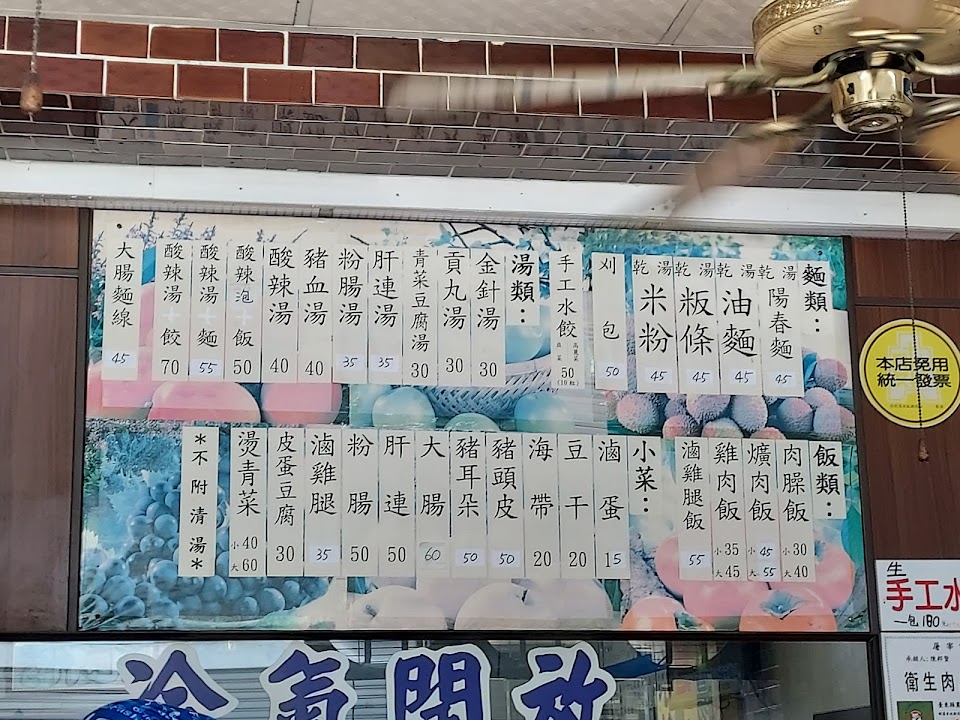 麵類：
乾 湯 陽春麵 45
乾 湯 油麵 45
乾 湯 粄條 45
乾 湯 米粉 45
刈包 50
手工水餃 高麗菜 韮菜 50 (10粒)
湯類：
金針湯 30
貢丸湯 30
青菜豆腐湯 30
肝連湯 35
粉腸湯 35
豬血湯 40
酸辣湯 40
酸辣泡飯 50
酸辣湯+麵 55
酸辣湯+餃 70
大腸麵線 45
飯類：
肉臊飯 小30 大40
爌肉飯 小45 大55
雞肉飯 小35 大45
滷雞腿飯 55
小菜：
滷蛋 15
豆干 20
海帶 20
豬頭皮 50
豬耳朵 50
大腸 60
肝連 50
粉腸 50
滷雞腿 35
皮蛋豆腐 30
燙青菜 小40 大60
*不附清湯*
本店免用
統一發票
生
手工水
一包180元
屠宰
衛生肉
冷氣開放